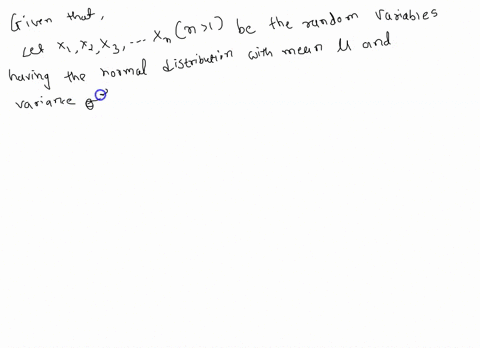 Given that,
Let x₁, x₂, x₃, ... xₙ (n>1) be the random variables
having the normal distribution with mean μ and
variance